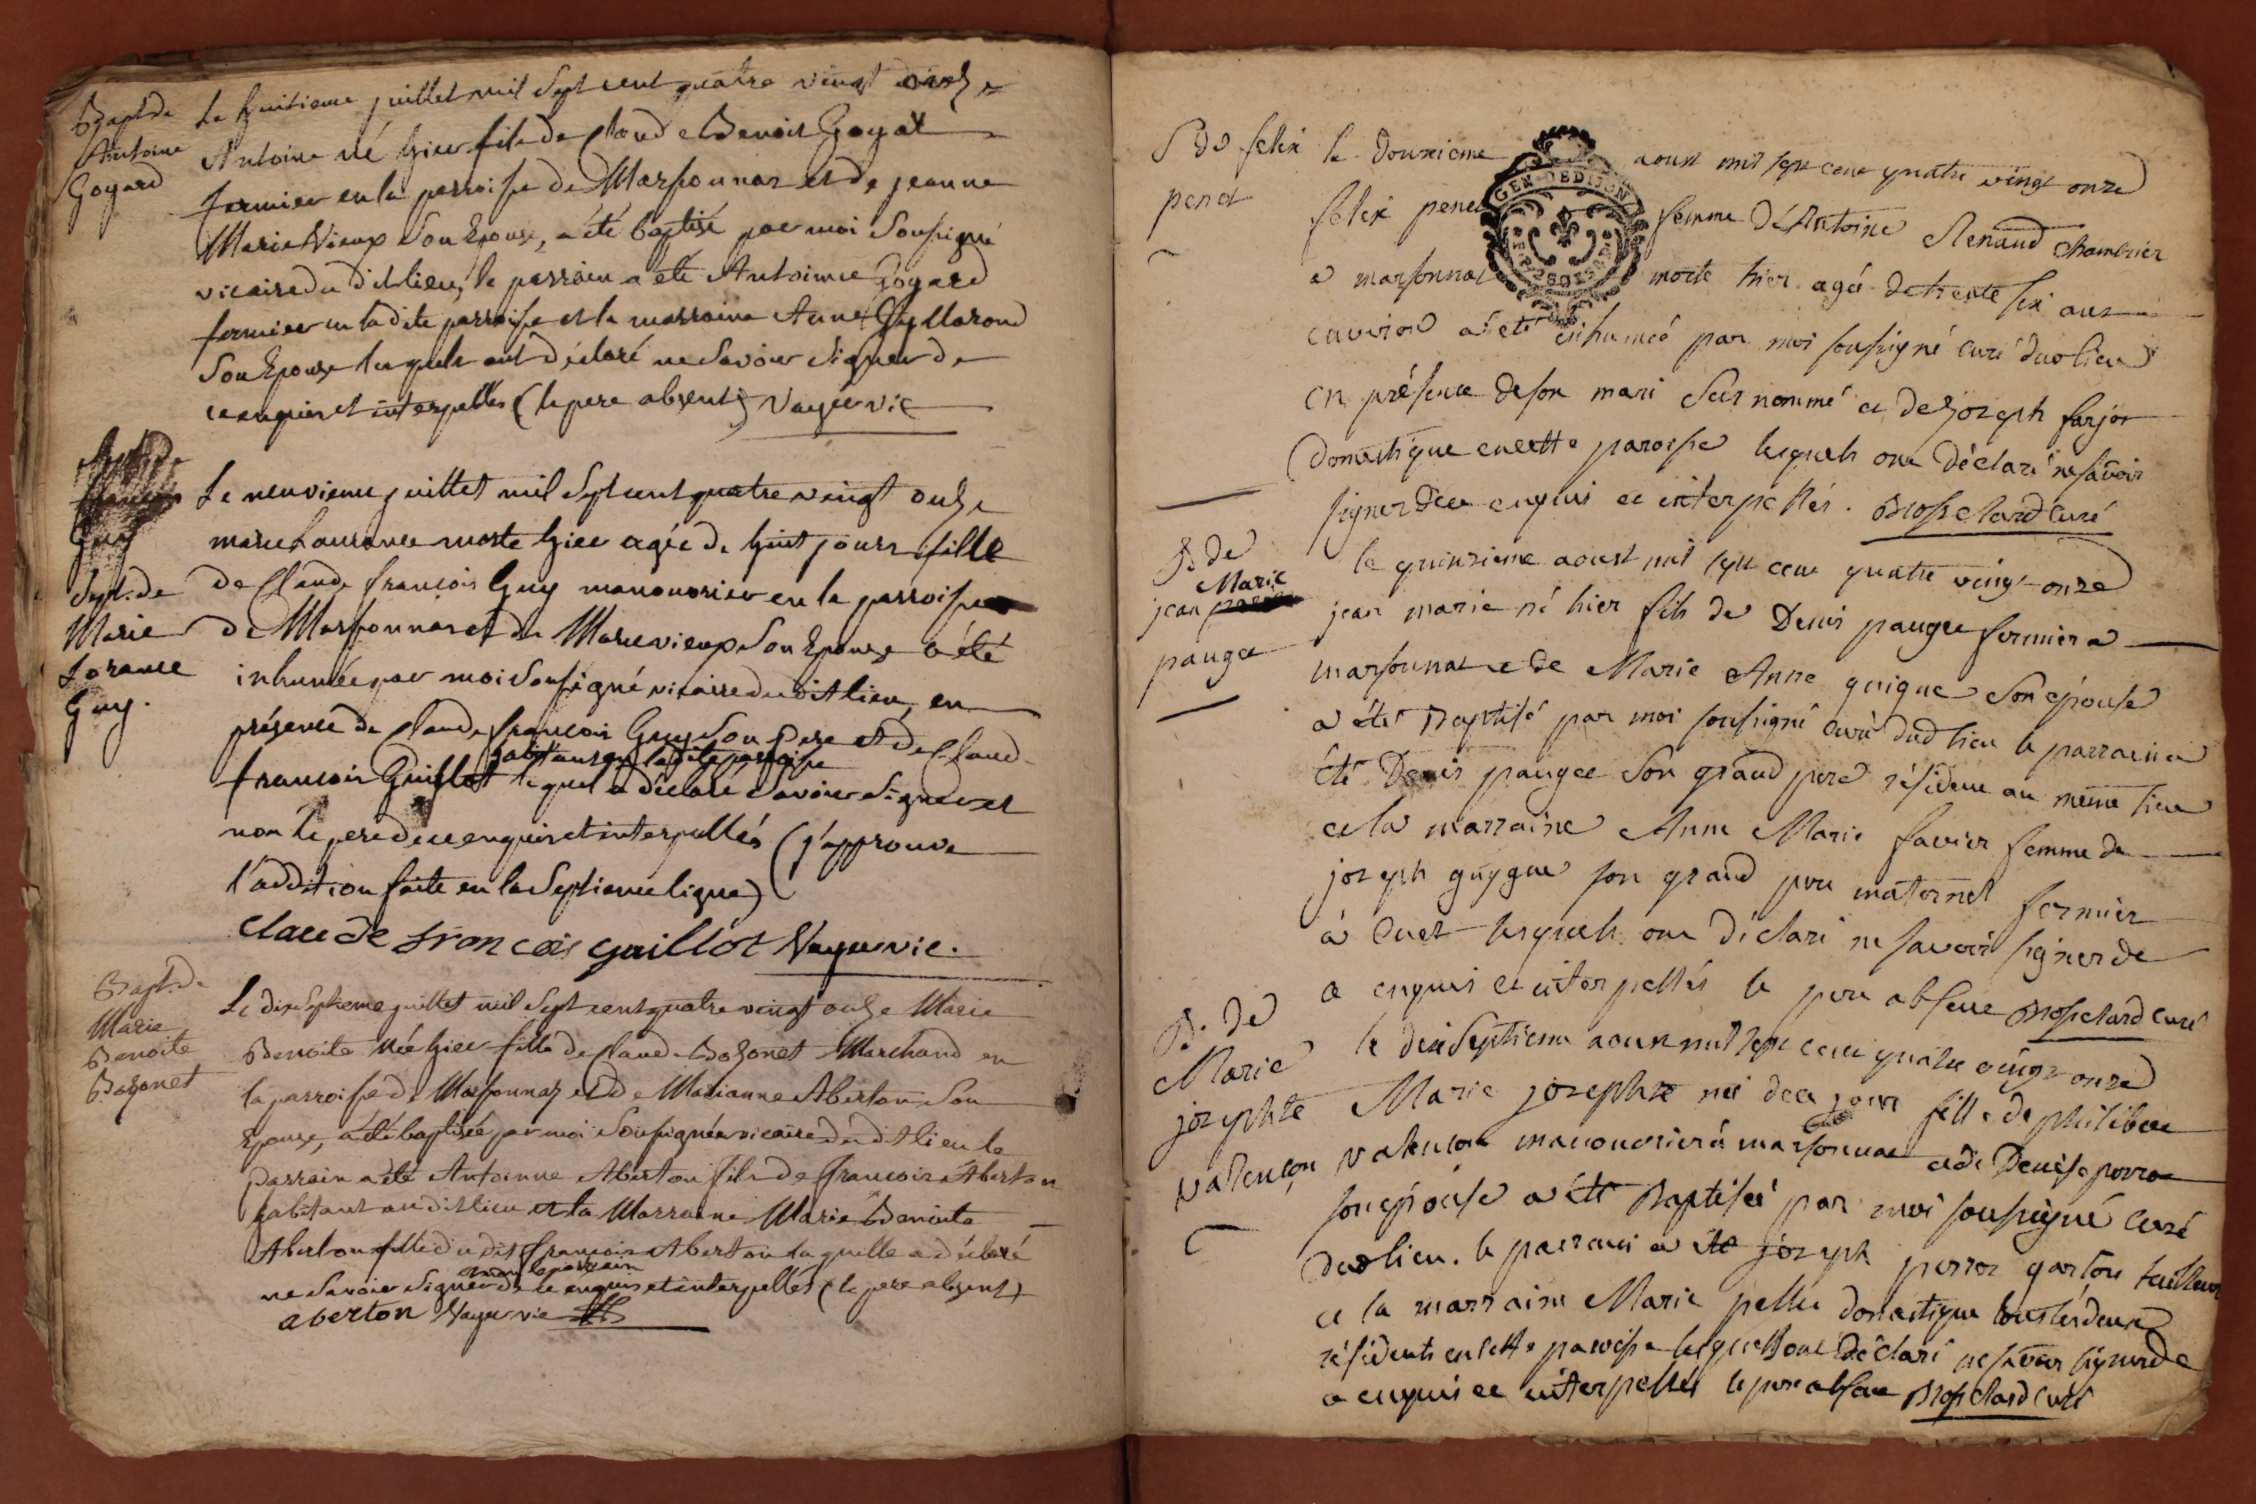 Bapt. de
Antoine
Gogard
Le huitieme juillet mil Sept cent quatre vingt onze
Antoine né hier fils de Claude Benoit Gogat
fermier en la parroisse de Marsonnaz et de jeanne
Marie Vieux Son Epouse, a été baptisé par moi Soussigné
vicaire du dit lieu, le parrain a été Antoinne Gogard
fermier en la dite parroisse et la marraine Anne
Son Epouse lesquels ont déclaré ne Savoir Signer de
ce enquis et interpellés (le pere absent) Vayer vic
Guy
Sept. de
Marie
Lorance
Guy.
Le neuvieme juillet mil Sept cent quatre vingt onze
marie Laurance morte hier agée de huit jours fille
de Claude françois Guy manouvrier en la parroisse
de Marsonnas et de Marie vieux Son Epouse a été
inhumée par moi Soussigné vicaire du dit lieu, en
présence de Claude françois Guy Son Pere et de Claude
habitans en la dite parroisse
francois Guillot lequel a déclaré Savoir Signer et
non le pere de ce enquis et interpellés (j'approuve
l'addition faite en la Septieme ligne)
Claude francois guillot Vayer vic.
Bapt. de
Marie
Benoite
Bozonet
Le dix Septieme juillet mil Sept cent quatre vingt onze Marie
Benoite Née hier fille de Claude Bozonet Marchand en
la parroisse de Marsonnaz et de Marianne Aberton Son
Epouse, a été baptisée par moi Soussigné vicaire du dit lieu le
parrain a été Antoinne Aberton fils de François Aberton
habitant au dit lieu et la Marraine Marie Benoite
Aberton fille du dit françois Aberton laquelle a déclaré
non le parrain
ne Savoir Signer de ce enquis et interpellés (le pere absent)
aberton Vayer vic
S de felix
penet
le douzieme aoust mil sept cent quatre vingt onze
felix penet femme d'Antoine Renaud chambrier
a marsonnat morte hier agée de trente six ans
environ a été inhumée par moi soussigné curé dud lieu
en présence de son mari Sus nommé et de Joseph farjot
domestique en cette paroisse lesquels ont déclaré ne savoir
signer de ce enquis et interpellés. Brosselard curé
B. de
Marie
jean
paugee
le quinzieme aoust mil sept cent quatre vingt onze
jean marie né hier fils de Denis paugee fermier a
marsonnat et de Marie Anne guigue Son épouse
a été Baptisé par moi soussigné curé dud lieu le parrain a
été Denis paugee Son grand pere résident au même lieu
et la marraine Anne Marie favier femme de
joseph guygue son grand pere maternel fermier
à Cuet lesquels ont déclaré ne savoir signer de
ce enquis et interpellés le pere absent Brosselard curé
B. de
Marie
josephte
valençon
le dix Septieme aoust mil sept cent quatre vingt onze
Marie josephte née de ce jour fille de philibert
valençon manouvrier à marsonnat et de Denise perrot
son épouse a été Baptisée par moi soussigné curé
dud lieu. le parrain a été joseph perrot garson tailleur
et la marraine Marie pellet domestique tous les deux
résidents en cette paroisse lesquels ont déclaré ne savoir signer de
ce enquis et interpellés le pere absent Brosselard curé